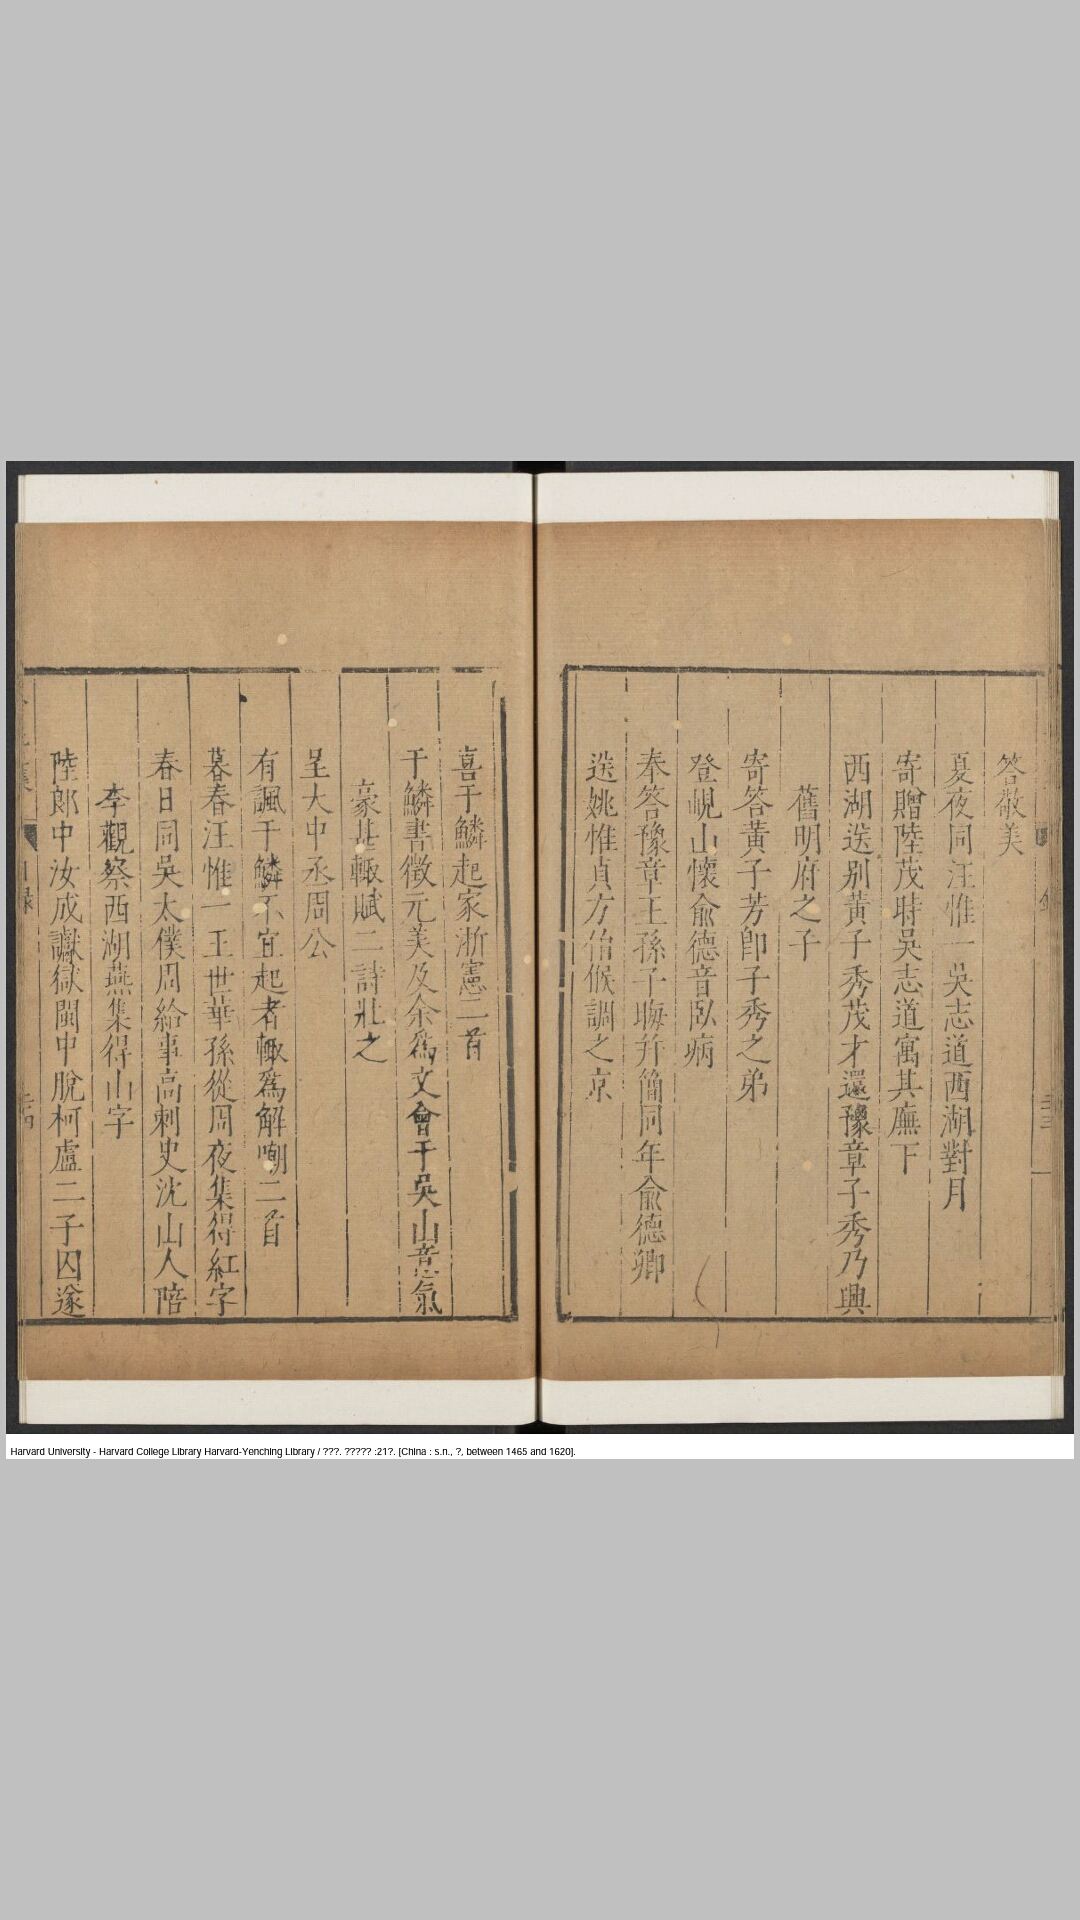 答敬美
夏夜同汪惟一吳志道西湖對月
寄贈陸茂時吳志道寓其廡下
西湖送别黃子秀茂才還豫章子秀乃興
舊明府之子
寄答黃子芳卽子秀之弟
登峴山懷俞德音臥病
奉答豫章王孫子晦幷簡同年俞德卿
送姚惟貞方伯候調之京
喜于鱗起家浙憲二首
于鱗書徵元美及余爲文會于吳山意氣
豪甚輙賦二詩壯之
呈大中丞周公
有諷于鱗不宜起者輙爲解嘲二首
暮春汪惟一王世華孫從周夜集得紅字
春日同吳太僕周給事高刺史沈山人陪
李觀察西湖燕集得山字
陸郎中汝成讞獄閩中脫柯盧二子囚遂
Harvard University - Harvard College Library Harvard-Yenching Library / ???. ????? :21?. [China : s.n., ?, between 1465 and 1620].